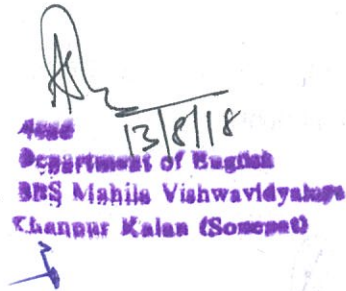 13/8/18
Head
Department of English
BPS Mahila Vishwavidyalaya
Khanpur Kalan (Sonepat)